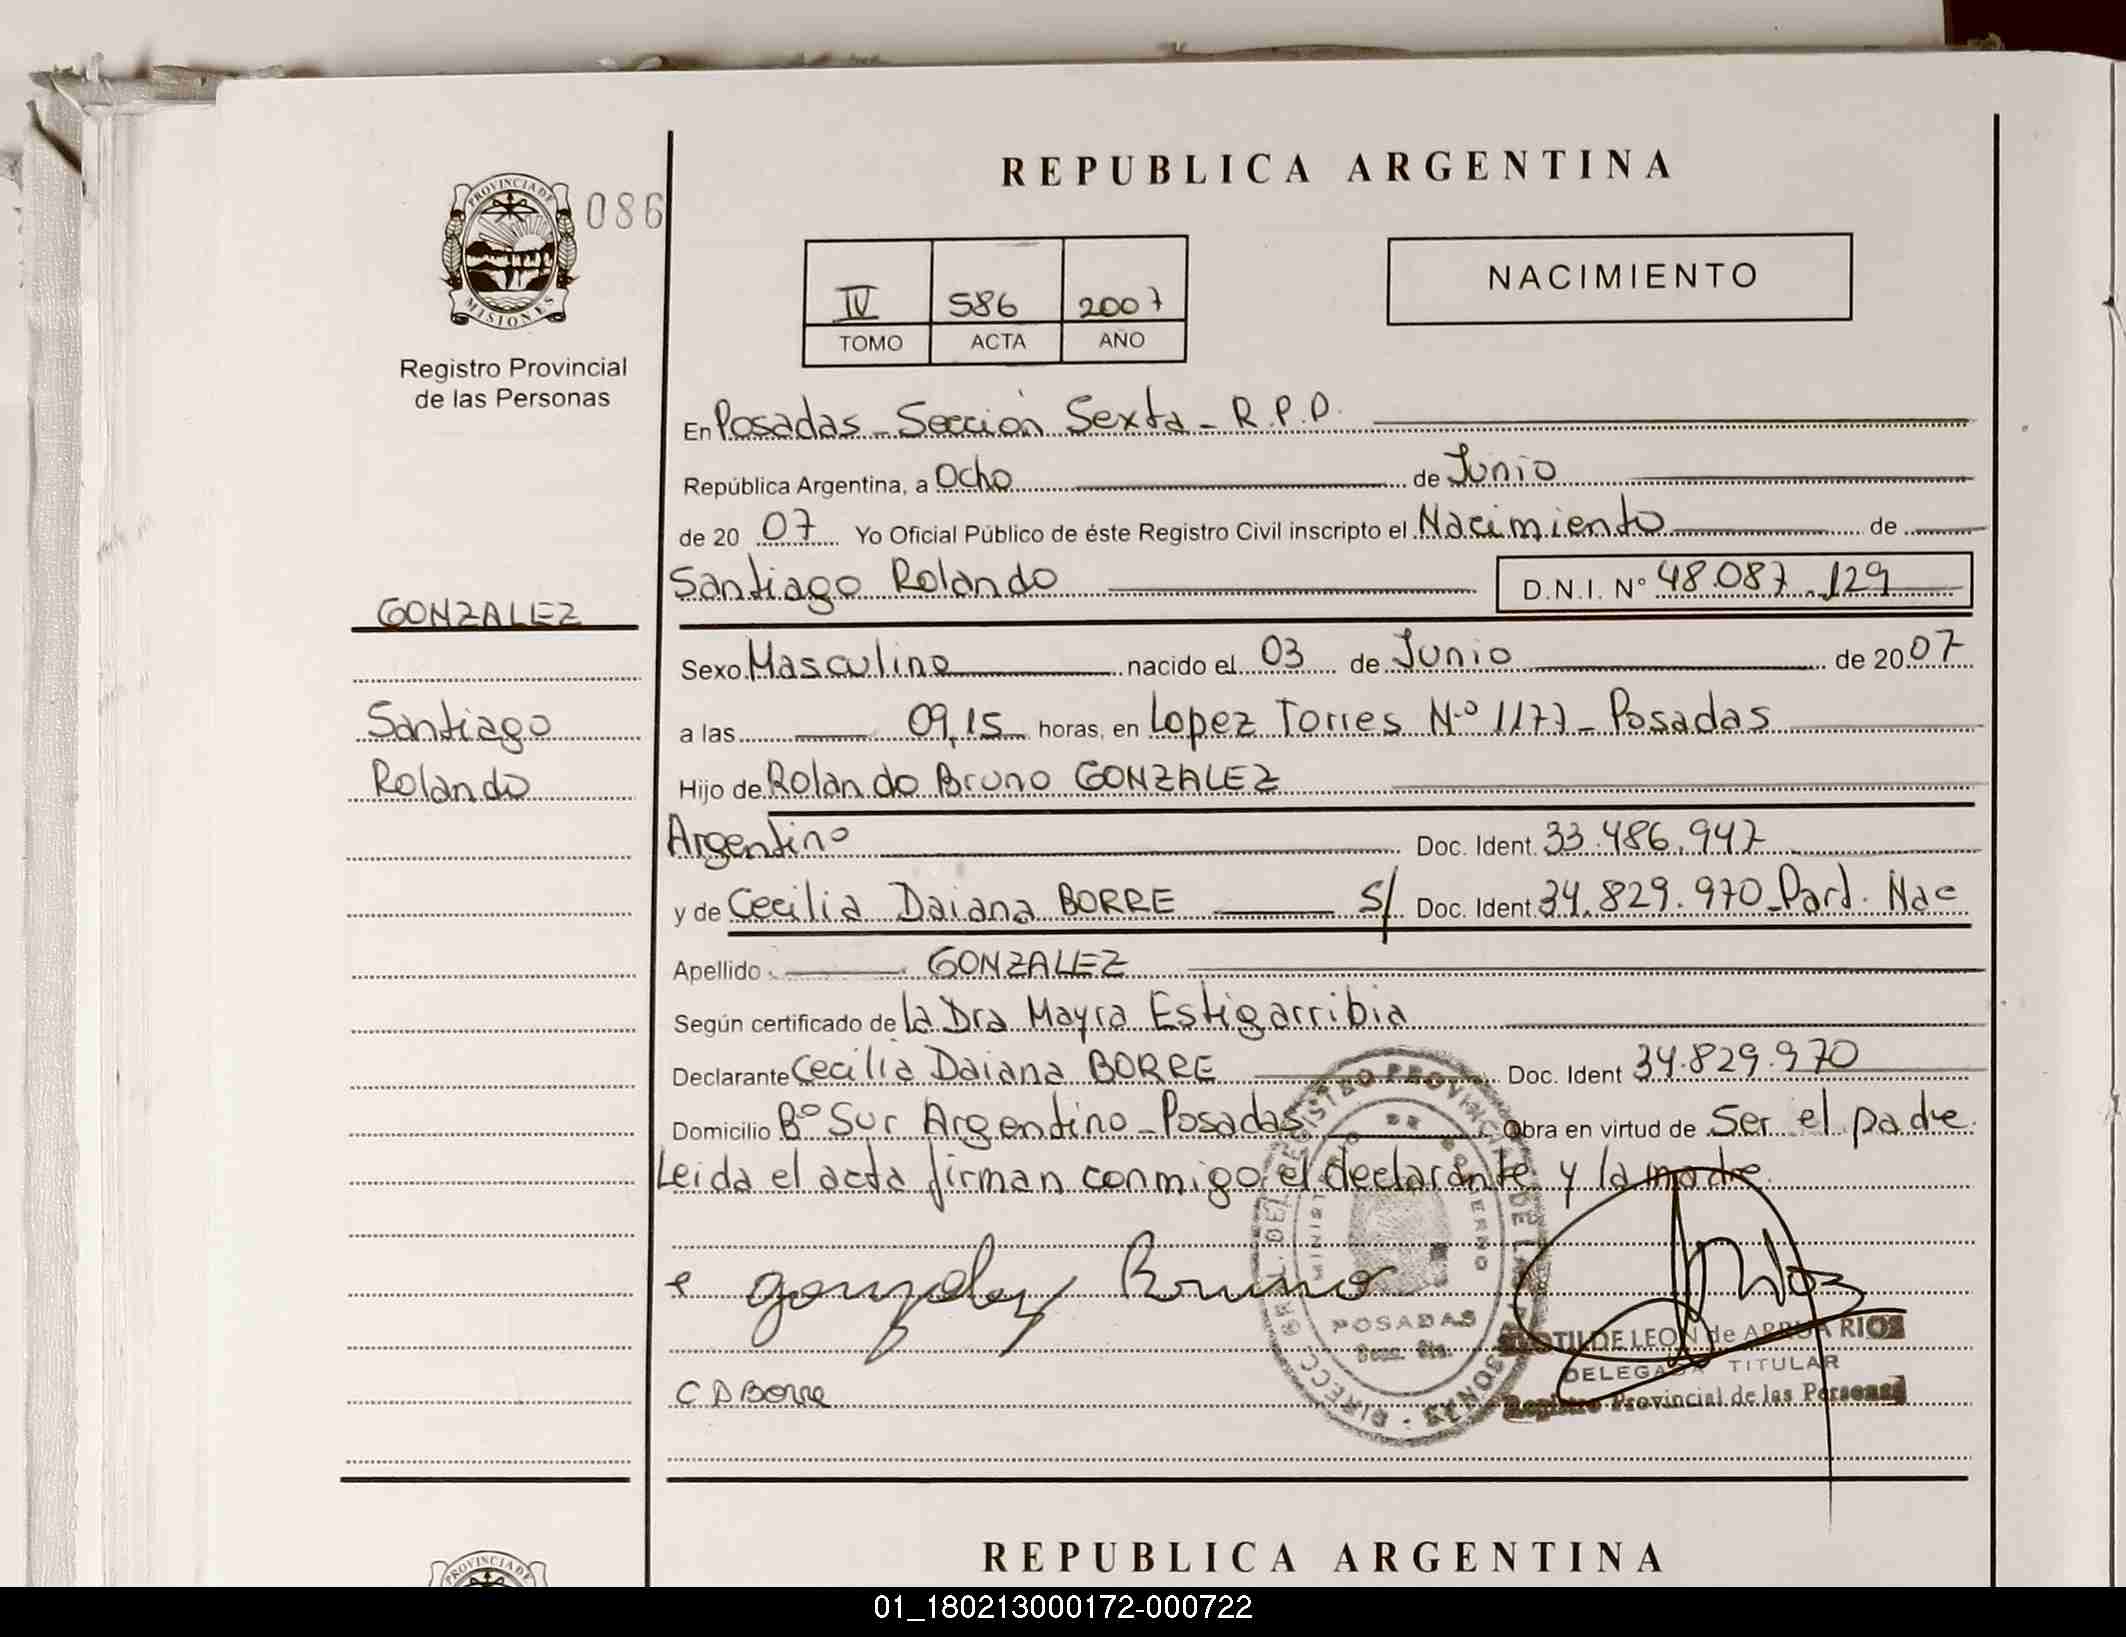 PROVINCIA DE
MISIONES
086
Registro Provincial
de las Personas
REPUBLICA ARGENTINA
IV 586 2007
TOMO ACTA AÑO
NACIMIENTO
En Posadas - Sección Sexta - R.P.P.
República Argentina, a Ocho de Junio
de 20 07 Yo Oficial Público de éste Registro Civil inscripto el Nacimiento de
Santiago Rolando D.N.I. Nº 48.087.129
GONZALEZ
Sexo Masculino nacido el 03 de Junio de 20 07
Santiago
a las 09,15 horas, en Lopez Torres Nº 1177 - Posadas
Rolando
Hijo de Rolando Bruno GONZALEZ
Argentino Doc. Ident. 33.486.947
y de Cecilia Daiana BORRE S/ Doc. Ident. 34.829.970 - Part. Nac
Apellido GONZALEZ
Según certificado de la Dra Mayra Estigarribia
Declarante Cecilia Daiana BORRE Doc. Ident 34.829.970
Domicilio Bº Sur Argentino - Posadas Obra en virtud de Ser el padre
Leida el acta firman conmigo el declarante y la madre
gonzalez Bruno
DIRECC. GRAL. DEL REGISTRO PROVINCIAL DE LAS PERSONAS
MINISTERIO DE GOBIERNO
POSADAS
Secc. 6ta.
CLOTILDE LEON de ARRUA RIOS
DELEGADA TITULAR
Registro Provincial de las Personas
C D Borre
REPUBLICA ARGENTINA
PROVINCIA DE
01_180213000172-000722